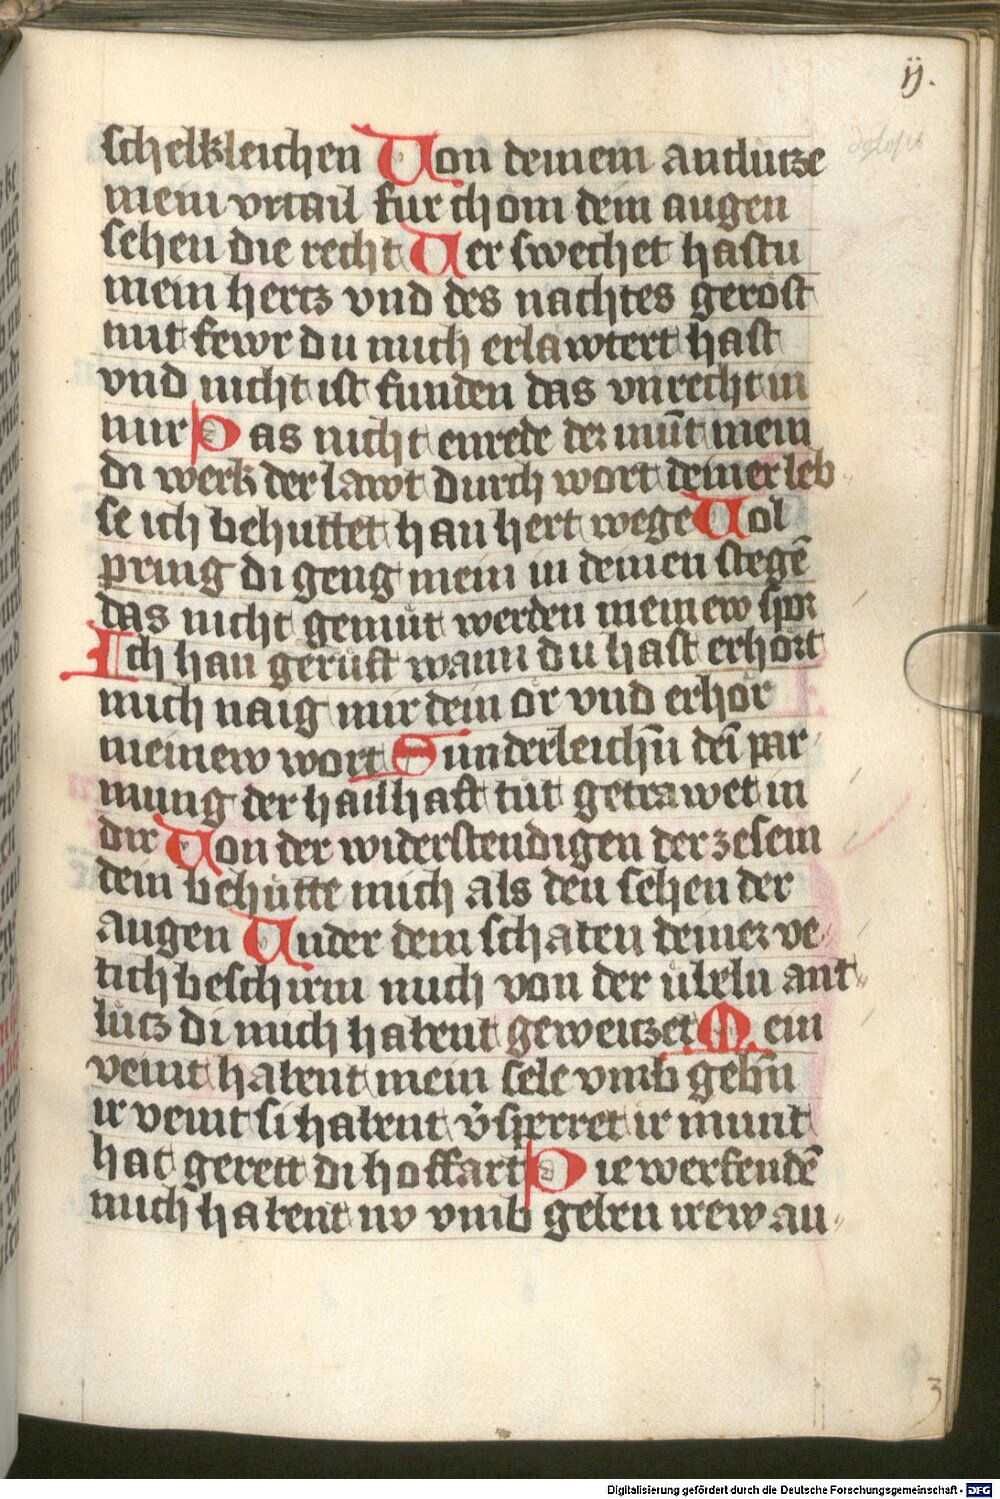 ij.
schelkleichen Von deinem antlutze
mein vrtail fur chom dein augen
sehen die recht Ver swechet hastu
mein hertz vnd des nachtes gerost
mit fewr du mich erlawtert hast
vnd nicht ist funden das vnrecht in
mir Das nicht enrede der mūt mein
di werk der lawt durch wort deiner leb
se ich behuttet han hert wege Vol
pring di geng mein in deinen stegē
das nicht gemut werden meinew spor
Ich han geruft wann du hast erhort
mich naig mir dein or vnd erhor
meinew wort Sunderleichn̄ dei᷑ par
mung der hailhaft tut getrawet in
dir Von der widerstendigen der zesem
dein behutte mich als den sehen der
augen Vnder dem schaten deiner ve
tich beschirm mich von der ubeln ant
lutz di mich habent geweitzet Mein
veint habent mein sele vmb gebn̄
ir veint si habent v̓sperret ir munt
hat gerett di hoffart Die werfendē
mich habent nv vmb geben irew au
3
Digitalisierung gefördert durch die Deutsche Forschungsgemeinschaft - DFG